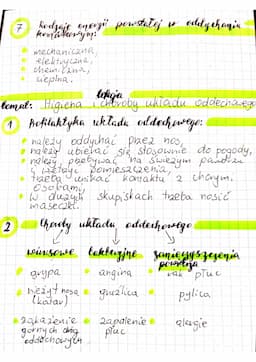 7 Rodzaje energii powstałej w oddychaniu
komórkowym:
• mechaniczna,
• elektryczna,
• chemiczna,
• cieplna.
lekcja
temat: Higiena i choroby układu oddechowego
1 Profilaktyka układu oddechowego:
• należy oddychać przez nos,
• należy ubierać się stosownie do pogody,
• należy przebywać na świeżym powietrzu
i wietrzyć pomieszczenia,
• trzeba unikać kontaktu z chorym.
osobami,
• w dużych skupiskach trzeba nosić
maseczki.
2 Choroby układu oddechowego
wirusowe bakteryjne zanieczyszczenia
powietrza
• grypa • angina • rak płuc
• nieżyt nosa • gruźlica • pylica
(katar)
• zakażenie • zapalenie • alergie
górnych dróg płuc
oddechowych